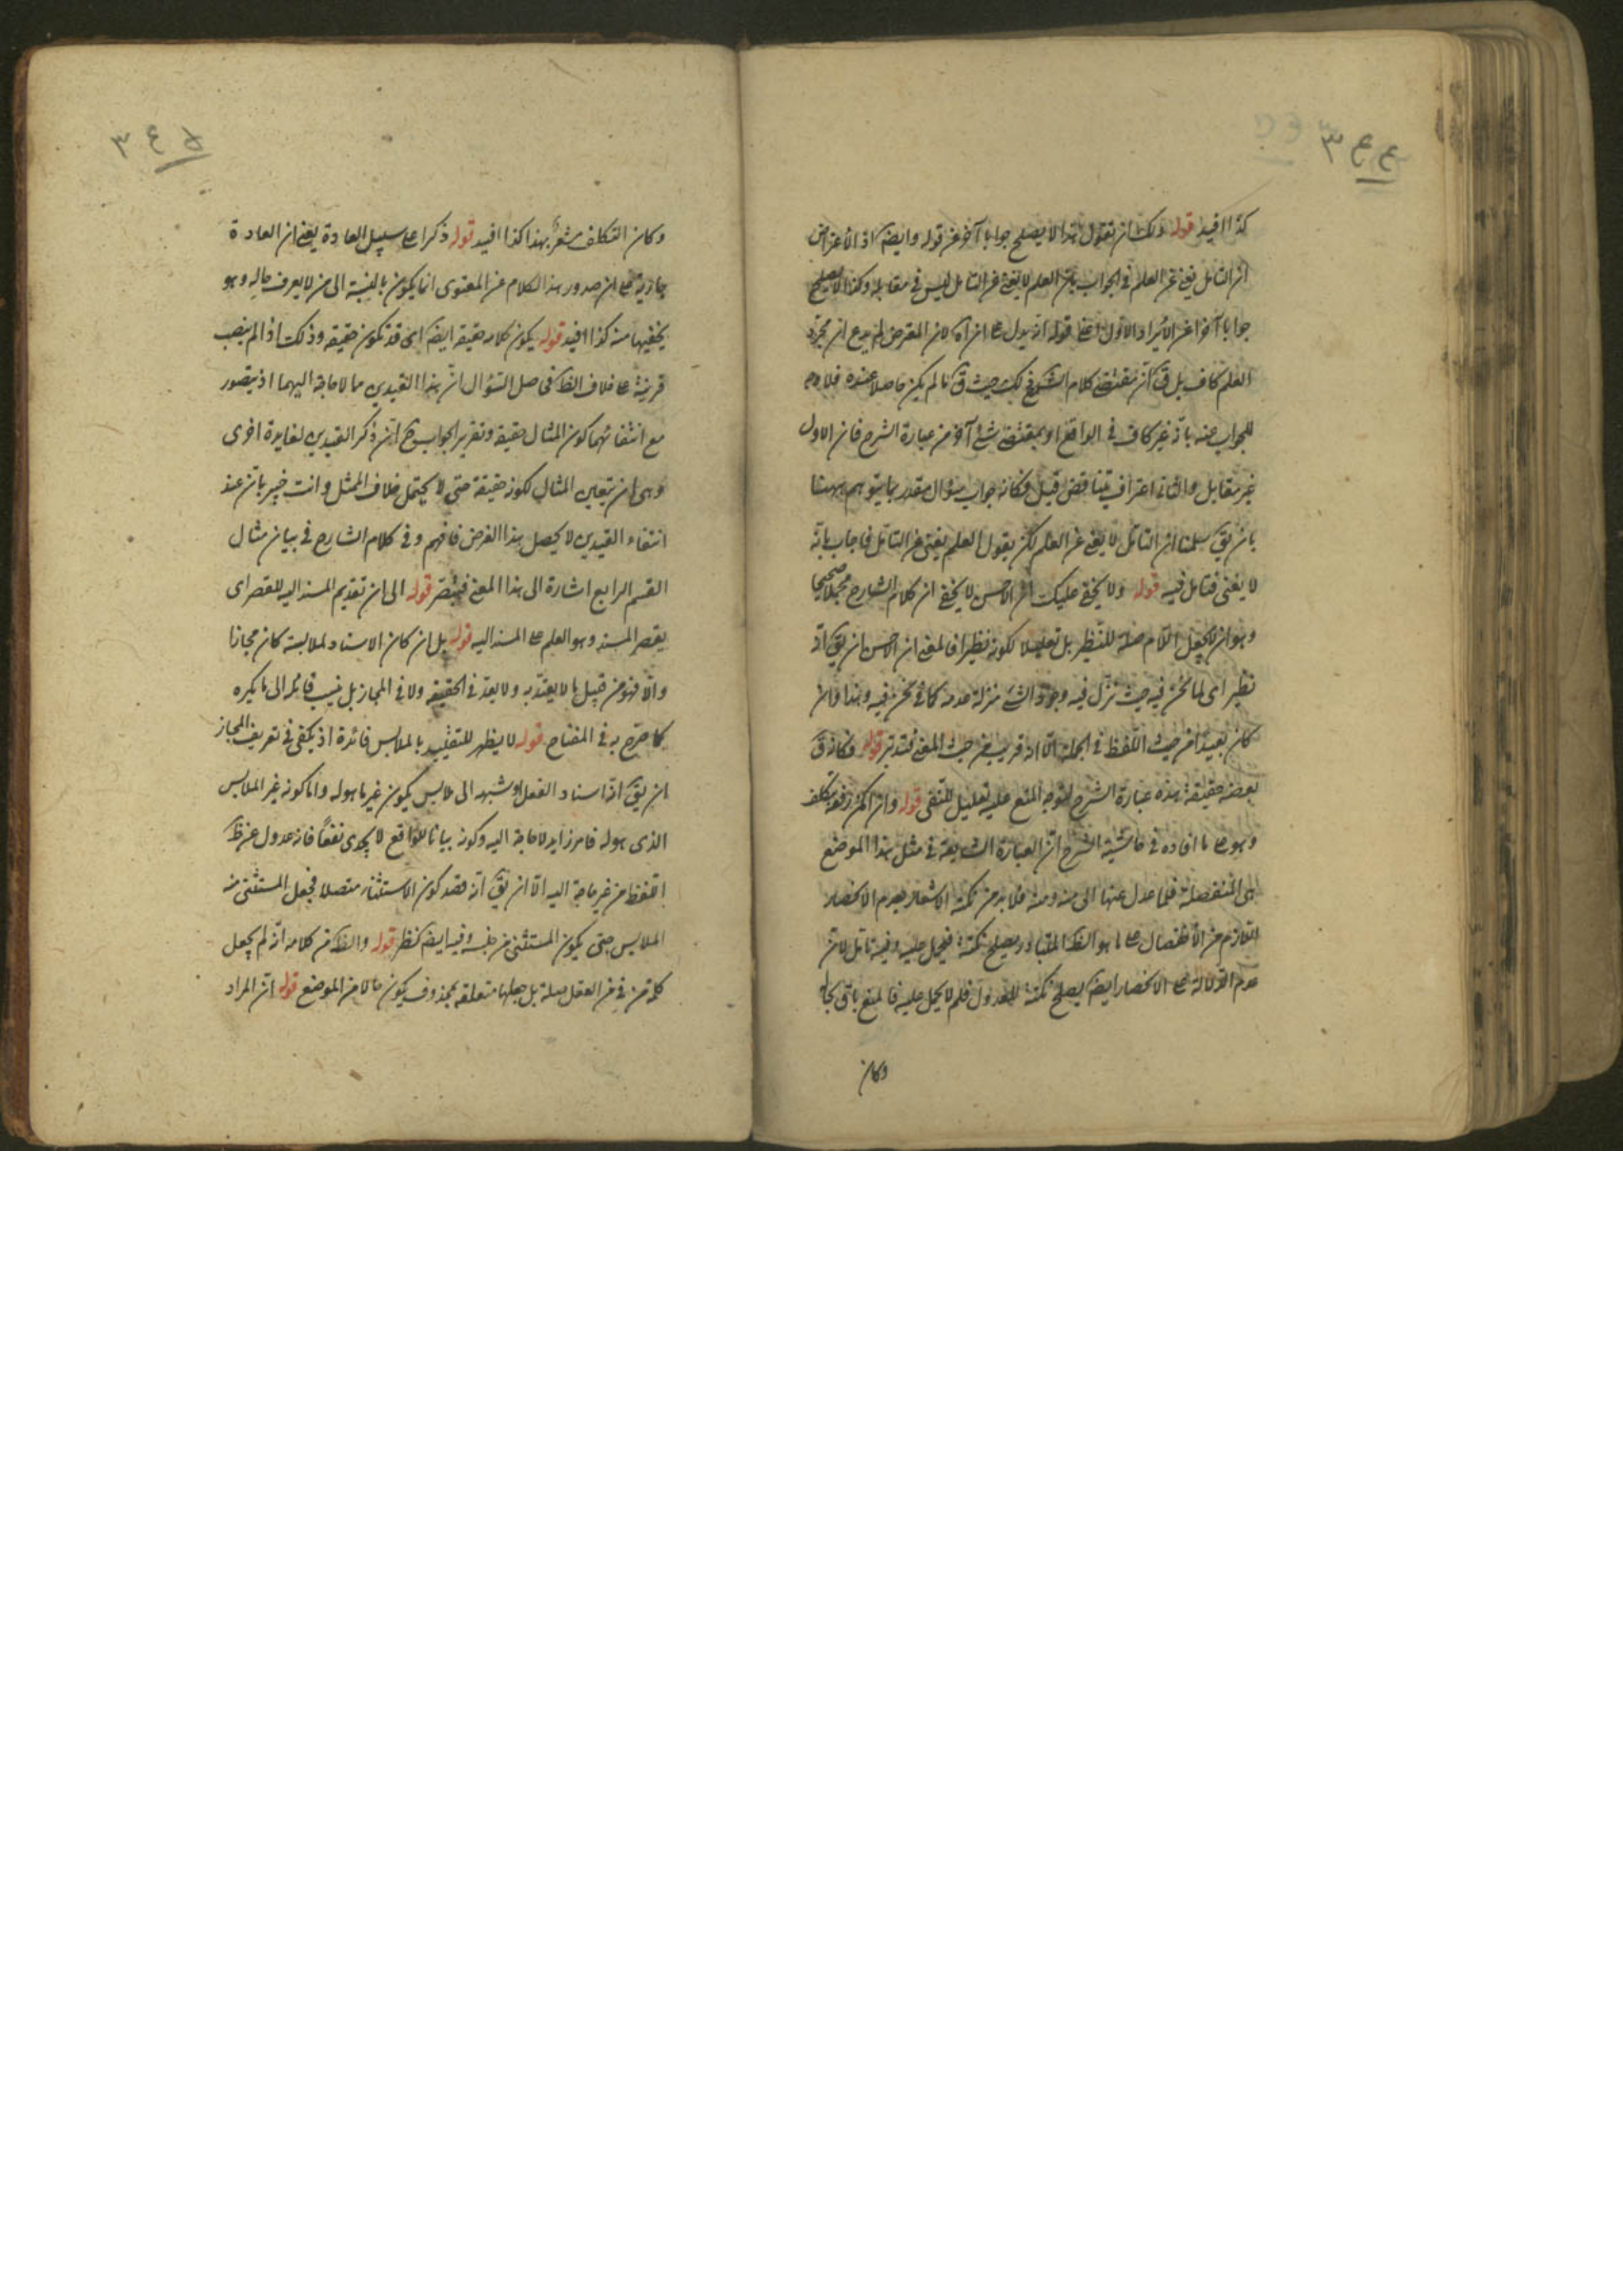 ٣٤٤
كذا افيد قوله ولك ان تقول هذا لا يصلح جوابا آخر عن قوله وايضا اذ الاعتراض
ان التأمل يغنى عن العلم فى الجواب بان العلم لا يغنى عن التأمل ليس فى مقابله وكذا لا يصلح
جوابا آخر عن الايراد الاول اعنى قوله اذ يدل على ان آه لان المعترض لم يدع ان مجرد
العلم كاف بل قال ان مقتضى كلام الشارح ذلك حيث ق ما لم يكن حاصلا عنده فلا وجه
للجواب عنه بانه غير كاف فى الواقع او بمقتضى شئ آخر من عبارة الشرح فان الاول
غير مقابل والثانى اعتراف بتناقض قيل فكانه جواب سؤال مقدر بما يتوهم ههنا
بان يق سلمنا ان التأمل لا يغنى عن العلم لكن يقول العلم يغنى عن التأمل فاجاب بانه
لا يغنى فتأمل فيه قوله ولا يخفى عليك ان الاحسن لا يخفى ان كلام الشارح محملا صحيحا
وهو ان لا يجعل اللام صلة للنظير بل تعليلا لكونه نظيرا فالمعنى ان الاحسن ان يق انه
نظير اى لما نحن فيه حيث نزل فيه وجود الشئ منزلة عدمه كما فى نحن فيه وهذا وان
كان بعيدا من حيث اللفظ فى الجملة الا انه قريب من حيث المعنى فتدبر قوله فكانه ق
بعضه حقيقة هذه عبارة الشرح لتوجه المنع عليه تعليل للنفى قوله وان امكن دفعه بتكلف
وهو على ما افاده فى حاشية الشرح ان العبارة الشايعة فى مثل هذا الموضع
هى المنفصلة فلما عدل عنها الى منه ومنه فلا بد من نكتة الاشعار بعدم الانحصار
اللازم من الانفصال على ما هو الظ المتبادر يصلح نكتة فيحمل عليه وفيه تأمل لان
عدم الدلالة على الانحصار ايضا يصلح نكتة للعدول فلم لا يحمل عليه فالمنع باق بحاله
وكان
٣٤٥
وكان التكلف مشعر بهذا كذا افيد قوله ذكرا على سبيل العادة يعنى ان العادة
جارية على ان صدور هذا الكلام عن المعتزلى انما يكون بالنسبة الى من لا يعرف حاله وهو
يخفيها منه كذا افيد قوله يكون كلامه حقيقة ايضا اى قد تكون حقيقة وذلك اذا لم ينصب
قرينة على خلاف الظ فحاصل السؤال ان هذا القيدين مما لا حاجة اليهما اذ يتصور
مع انتفائهما كون المثال حقيقة وتقرير الجواب ح ان ذكر القيدين لفايدة اخرى
وهى ان يتعين المثال لكونه حقيقة حتى لا يحتمل خلاف الممثل وانت خبير بان عند
انتفاء القيدين لا يحصل هذا الغرض فافهم وفى كلام الشارح فى بيان مثال
القسم الرابع اشارة الى هذا المعنى فتبصر قوله الى ان تقديم المسند اليه للقصر اى
يقصر المسند وهو العلم على المسند اليه قوله بل ان كان الاسناد لملابسة كان مجازا
والا فهو من قبيل ما لا يعتد به ولا يعد فى الحقيقة ولا فى المجاز بل ينسب قائله الى ما يكره
كما صرح به فى المفتاح قوله لا يظهر للتقييد بالملابس فائدة اذ يكفى فى تعريف المجاز
ان يق انه اسناد الفعل او شبهه الى ملابس يكون غير ما هو له واما كونه غير الملابس
الذى هو له فامر زايد لا حاجة اليه وكونه بيانا للواقع لا يجدى نفعا فانه عدول عن ظ
اللفظ من غير حاجة اليه الا ان يق انه قصد كون الاستثناء متصلا فجعل المستثنى منه
الملابس حتى يكون المستثنى من جنسه وفيه ايضا نظر قوله والظ من كلامه انه لم يجعل
كلمة من فى من العقل صلة بل جعلها متعلقة بمحذوف يكون حالا من الموضع قوله ان المراد